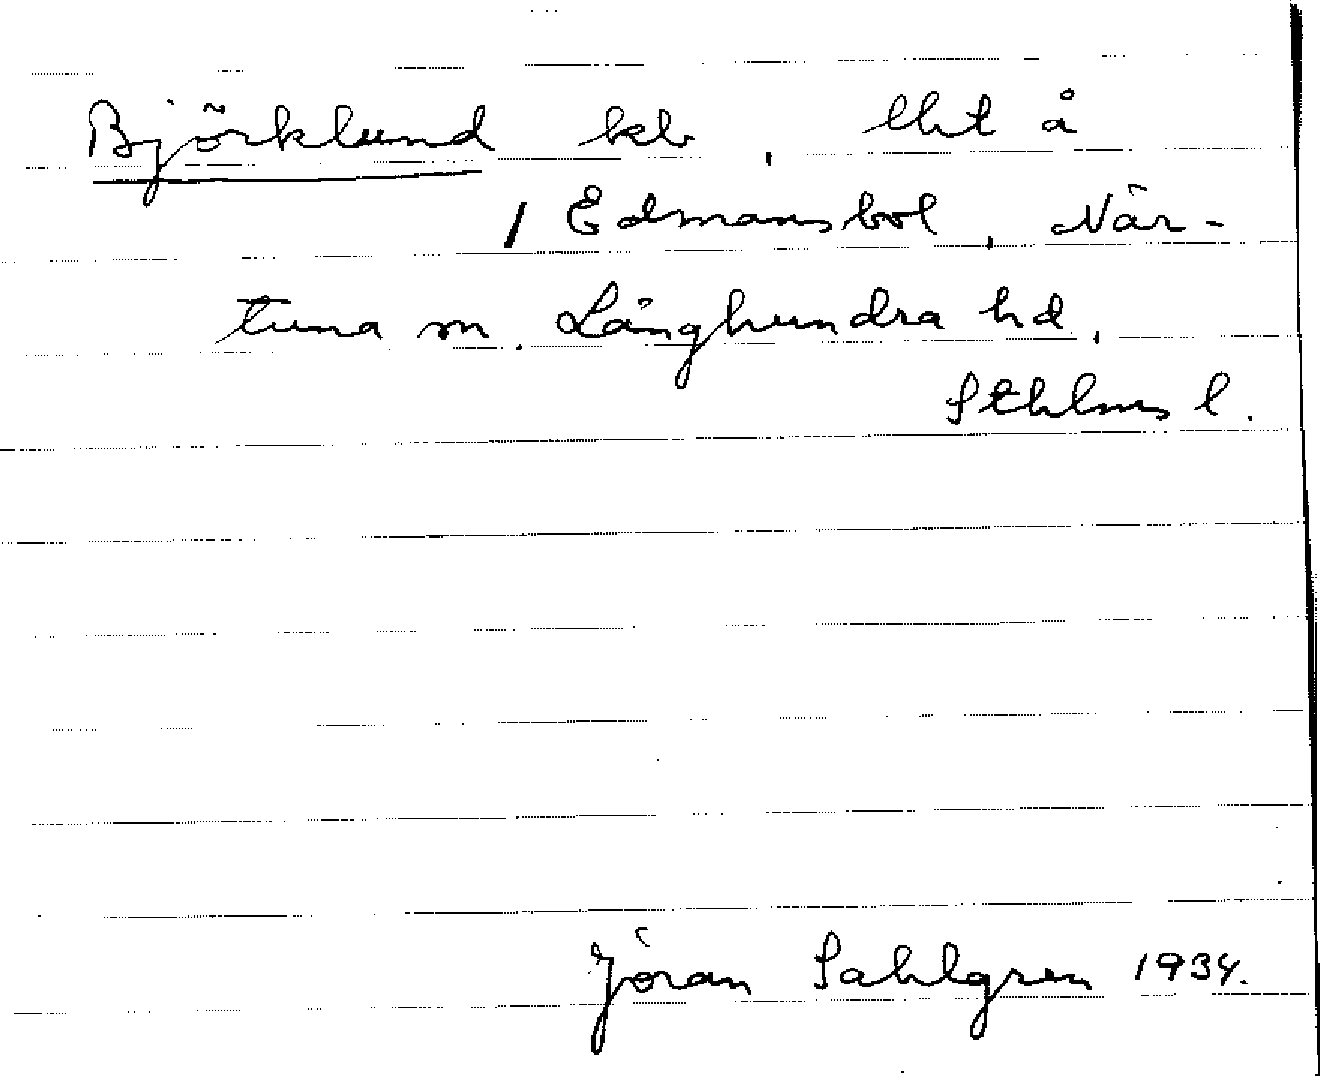 Björklund kb, lht å
1 Edmansbol, När-
tuna sn. Långhundra hd,
Sthlms l.
Jöran Sahlgren 1934.